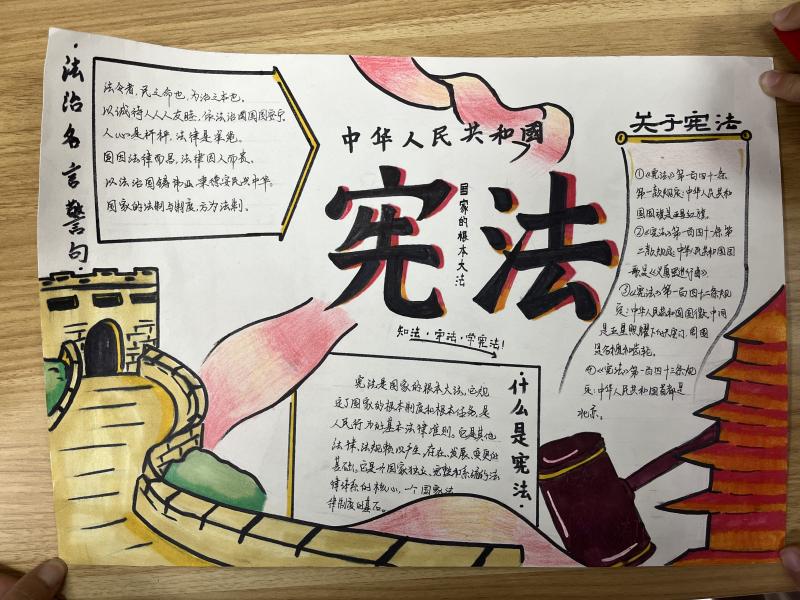 法治名言警句
法令者,民之命也,为治之本也。
以诚待人人人友睦,依法治国国国安乐
人心是杆秤,法律是准绳。
国因法律而昌,法律因人而贵。
以法治国铸伟业,秉德富民兴中华。
国家的法制与制度,方为法制。
中华人民共和國
宪法
国家的根本大法
知法·守法·学宪法!
关于宪法
①《宪法》第一百四十一条
第一款规定:中华人民共和
国国旗是五星红旗。
②《宪法》第一百四十一条第
二款规定:中华人民共和国国
歌是《义勇军进行曲》。
③《宪法》第一百四十二条规
定:中华人民共和国国徽,中间
是五星照耀下的天安门,周围
是谷穗和齿轮。
④《宪法》第一百四十三条规
定:中华人民共和国首都是
北京。
什么是宪法
宪法是国家的根本大法。它规
定了国家的根本制度和根本任务,是
人民行为的基本法律准则。它是其他
法律、法规赖以产生、存在、发展、变更的
基础。它是一个国家独立、完整和系统的法
律体系的核心,一个国家法
律制度的基石。